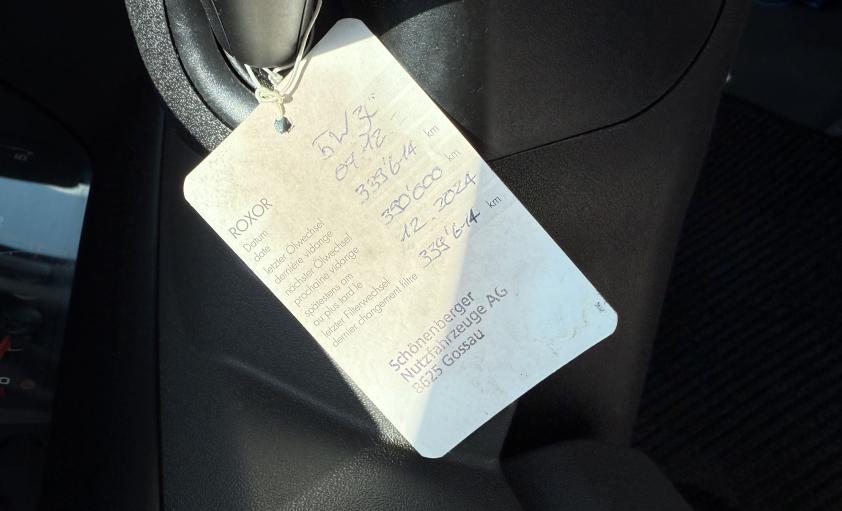 ROXOR
5W30
Datum
date 07.12.
letzter Ölwechsel
dernière vidange 339'614 km
nächster Ölwechsel
prochaine vidange 390'000 km
spätestens am
au plus tard le 12.2024
letzter Filterwechsel
dernier changement filtre 339'614 km
Schönenberger
Nutzfahrzeuge AG
8625 Gossau